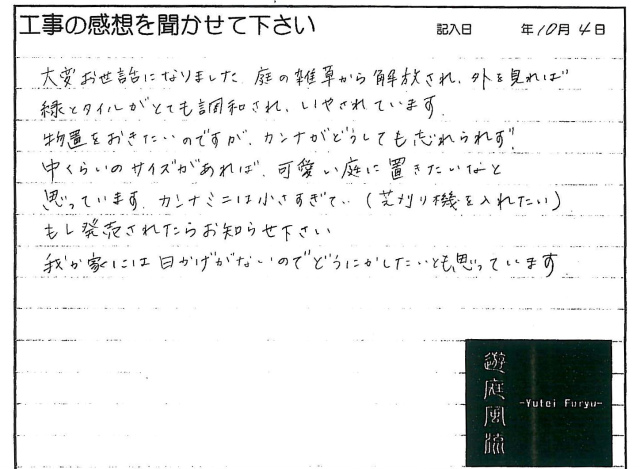 工事の感想を聞かせて下さい
記入日 年10月4日
大変お世話になりました 庭の雑草から解放され、外を見れば
緑とタイルがとても調和され、いやされています
物置をおきたいのですが、カンナがどうしても忘れられず!
中くらいのサイズがあれば、可愛い庭に置きたいなと
思っています カンナミニは小さすぎて、(芝刈り機を入れたい)
もし発売されたらお知らせ下さい
我が家には日かげがないのでどうにかしたいとも思っています
遊庭風流
-Yutei Furyu-